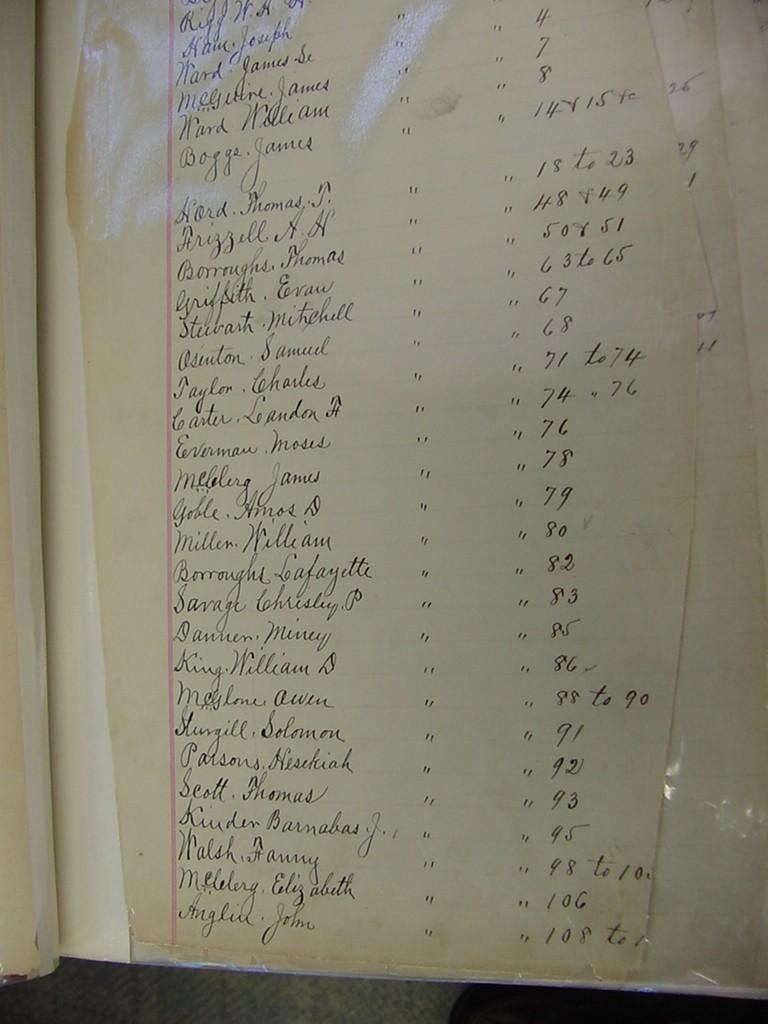 Riff W. H. H. " 4
Ham. Joseph " " 7
Ward James Se " " 8
McGuire. James " " 14 & 15 &
Ward William "
Boggs. James " 18 to 23
Hord. Thomas. T. " " 48 & 49
Frizzell A. H " " 50 & 51
Borroughs. Thomas " " 63 to 65
Griffith. Evan " " 67
Stewart. Mitchell " " 68
Osenton. Samuel " " 71 to 74
Taylor. Charles " " 74 " 76
Carter. Landon F " " 76
Everman. Moses " " 78
McClerg James " " 79
Goble. Amos D " " 80
Miller. William " " 82
Borroughs Lafayette " " 83
Savage Chrisley. P " " 85
Danner. Miney " " 86
King. William D " " 88 to 90
McGlone. Owen " " 91
Sturgill. Solomon " " 92
Parsons. Hesekiah " " 93
Scott. Thomas " " 95
Kinder Barnabas. J. " " 98 to 10
Walsh. Fanny " " 106
McClerg. Elizabeth " " 108 to 1
Anglin. John "